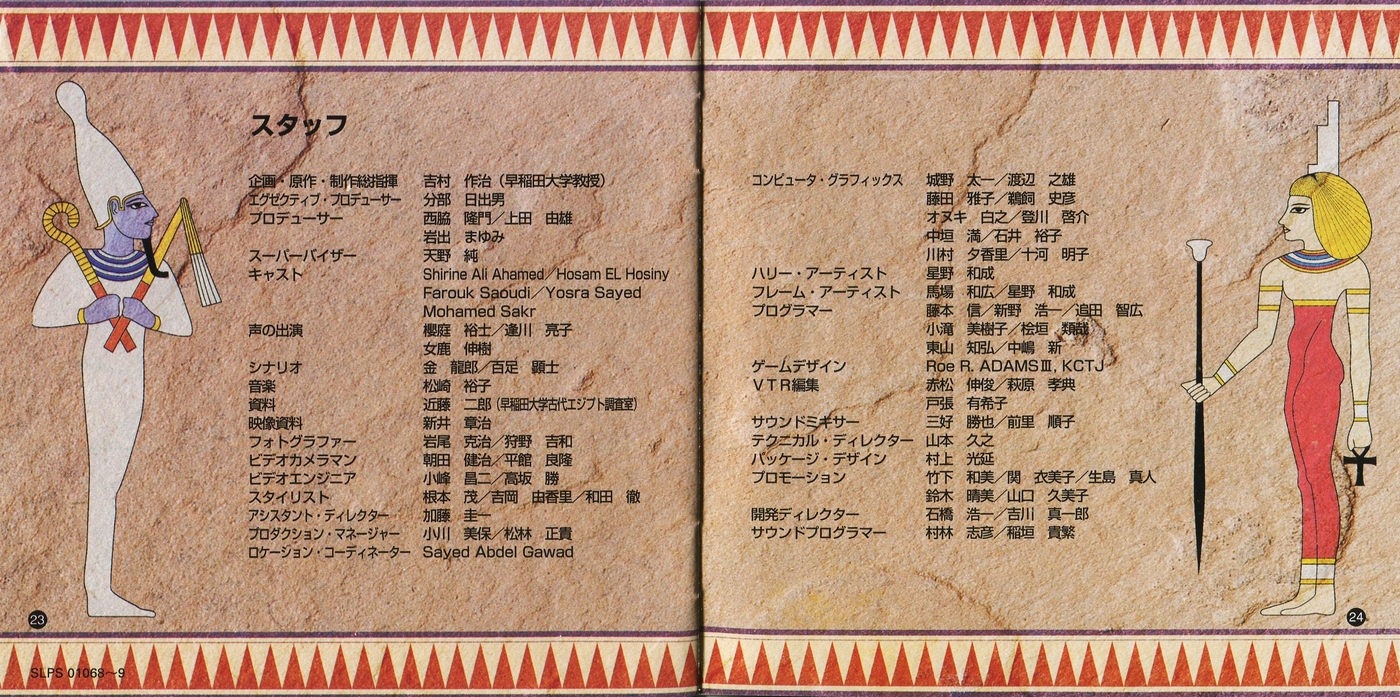 スタッフ
企画・原作・制作総指揮 吉村 作治（早稲田大学教授）
エグゼクティブ・プロデューサー 分部 日出男
プロデューサー 西脇 隆門／上田 由雄
岩出 まゆみ
スーパーバイザー 天野 純
キャスト Shirine Ali Ahamed／Hosam EL Hosiny
Farouk Saoudi／Yosra Sayed
Mohamed Sakr
声の出演 櫻庭 裕士／逢川 亮子
女鹿 伸樹
シナリオ 金 龍郎／百足 顕士
音楽 松崎 裕子
資料 近藤 二郎（早稲田大学古代エジプト調査室）
映像資料 新井 章治
フォトグラファー 岩尾 克治／狩野 吉和
ビデオカメラマン 朝田 健治／平館 良隆
ビデオエンジニア 小峰 昌二／高坂 勝
スタイリスト 根本 茂／吉岡 由香里／和田 徹
アシスタント・ディレクター 加藤 圭一
プロダクション・マネージャー 小川 美保／松林 正貴
ロケーション・コーディネーター Sayed Abdel Gawad
23
SLPS 01068〜9
コンピュータ・グラフィックス 城野 太一／渡辺 之雄
藤田 雅子／鵜飼 史彦
オヌキ 白之／登川 啓介
中垣 満／石井 裕子
川村 夕香里／十河 明子
ハリー・アーティスト 星野 和成
フレーム・アーティスト 馬場 和広／星野 和成
プログラマー 藤本 信／新野 浩一／追田 智広
小滝 美樹子／桧垣 類哉
東山 知弘／中嶋 新
ゲームデザイン Roe R. ADAMSⅢ, KCTJ
ＶＴＲ編集 赤松 伸俊／萩原 孝典
戸張 有希子
サウンドミキサー 三好 勝也／前里 順子
テクニカル・ディレクター 山本 久之
パッケージ・デザイン 村上 光延
プロモーション 竹下 和美／関 衣美子／生島 真人
鈴木 晴美／山口 久美子
開発ディレクター 石橋 浩一／吉川 真一郎
サウンドプログラマー 村林 志彦／稲垣 貴繁
24